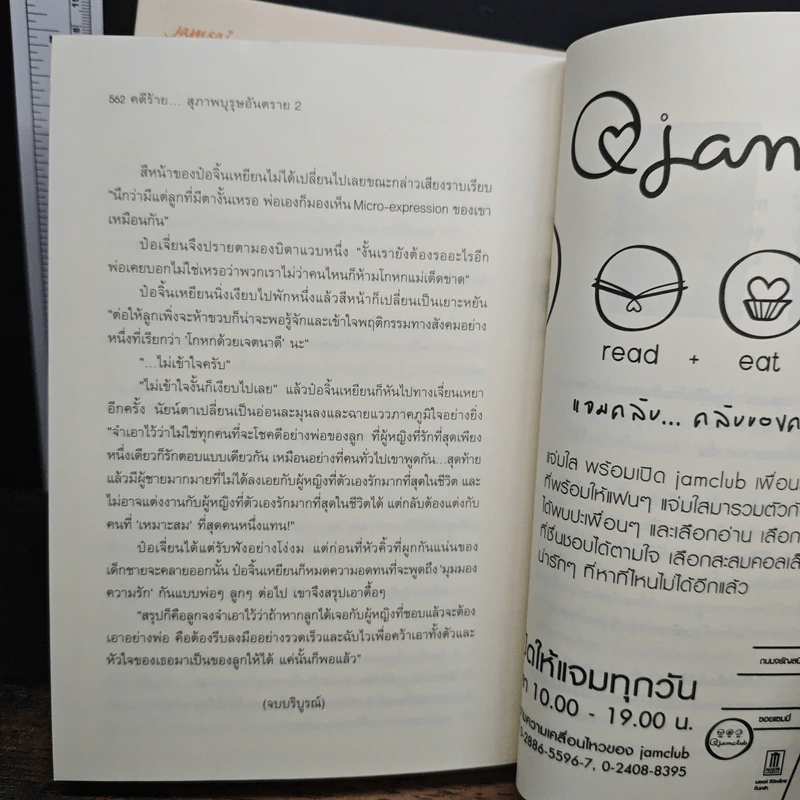 jamsai
562 คดีร้าย... สุภาพบุรุษอันตราย 2
สีหน้าของป๋อจิ้นเหยียนไม่ได้เปลี่ยนไปเลยขณะกล่าวเสียงราบเรียบ
"นึกว่ามีแต่ลูกที่มีตางั้นเหรอ พ่อเองก็มองเห็น Micro-expression ของเขา
เหมือนกัน"
ป๋อเจี่ยนจึงปรายตามองบิดาแวบหนึ่ง "งั้นเรายังต้องรออะไรอีก
พ่อเคยบอกไม่ใช่เหรอว่าพวกเราไม่ว่าคนไหนก็ห้ามโกหกแม่เด็ดขาด"
ป๋อจิ้นเหยียนนิ่งเงียบไปพักหนึ่งแล้วสีหน้าก็เปลี่ยนเป็นเยาะหยัน
"ต่อให้ลูกเพิ่งจะห้าขวบก็น่าจะพอรู้จักและเข้าใจพฤติกรรมทางสังคมอย่าง
หนึ่งที่เรียกว่า 'โกหกด้วยเจตนาดี' นะ"
"...ไม่เข้าใจครับ"
"ไม่เข้าใจงั้นก็เงียบไปเลย" แล้วป๋อจิ้นเหยียนก็หันไปทางเจี่ยนเหยา
อีกครั้ง นัยน์ตาเปลี่ยนเป็นอ่อนละมุนลงและฉายแววภาคภูมิใจอย่างยิ่ง
"จำเอาไว้ว่าไม่ใช่ทุกคนที่จะโชคดีอย่างพ่อของลูก ที่ผู้หญิงที่รักที่สุดเพียง
หนึ่งเดียวก็รักตอบแบบเดียวกัน เหมือนอย่างที่คนทั่วไปเขาพูดกัน...สุดท้าย
แล้วมีผู้ชายมากมายที่ไม่ได้ลงเอยกับผู้หญิงที่ตัวเองรักมากที่สุดในชีวิต และ
ไม่อาจแต่งงานกับผู้หญิงที่ตัวเองรักมากที่สุดในชีวิตได้ แต่กลับต้องแต่งกับ
คนที่ 'เหมาะสม' ที่สุดคนหนึ่งแทน!"
ป๋อเจี่ยนได้แต่รับฟังอย่างโง่งม แต่ก่อนที่หัวคิ้วที่ผูกกันแน่นของ
เด็กชายจะคลายออกนั้น ป๋อจิ้นเหยียนก็หมดความอดทนที่จะพูดถึง 'มุมมอง
ความรัก' กันแบบพ่อๆ ลูกๆ ต่อไป เขาจึงสรุปเอาดื้อๆ
"สรุปก็คือลูกจงจำเอาไว้ว่าถ้าหากลูกได้เจอกับผู้หญิงที่ชอบแล้วจะต้อง
เอาอย่างพ่อ คือต้องรีบลงมืออย่างรวดเร็วและฉับไวเพื่อคว้าเอาทั้งตัวและ
หัวใจของเธอมาเป็นของลูกให้ได้ แค่นั้นก็พอแล้ว"
(จบบริบูรณ์)
@jam
read + eat
แจมคลับ... คลับของค
แจ่มใส พร้อมเปิด jamclub เพื่อน
ที่พร้อมให้แฟนๆ แจ่มใสมารวมตัวกั
ได้พบปะเพื่อนๆ และเลือกอ่าน เลือก
ที่ชื่นชอบได้ตามใจ เลือกสะสมคอลเล็
น่ารักๆ ที่หาที่ไหนไม่ได้อีกแล้ว
ดให้แจมทุกวัน
10.00 - 19.00 น.
ความเคลื่อนไหวของ jamclub
2-2886-5596-7, 0-2408-8395
ถนนจรัญสนิ
ซอยแซมมี่
@jamclub